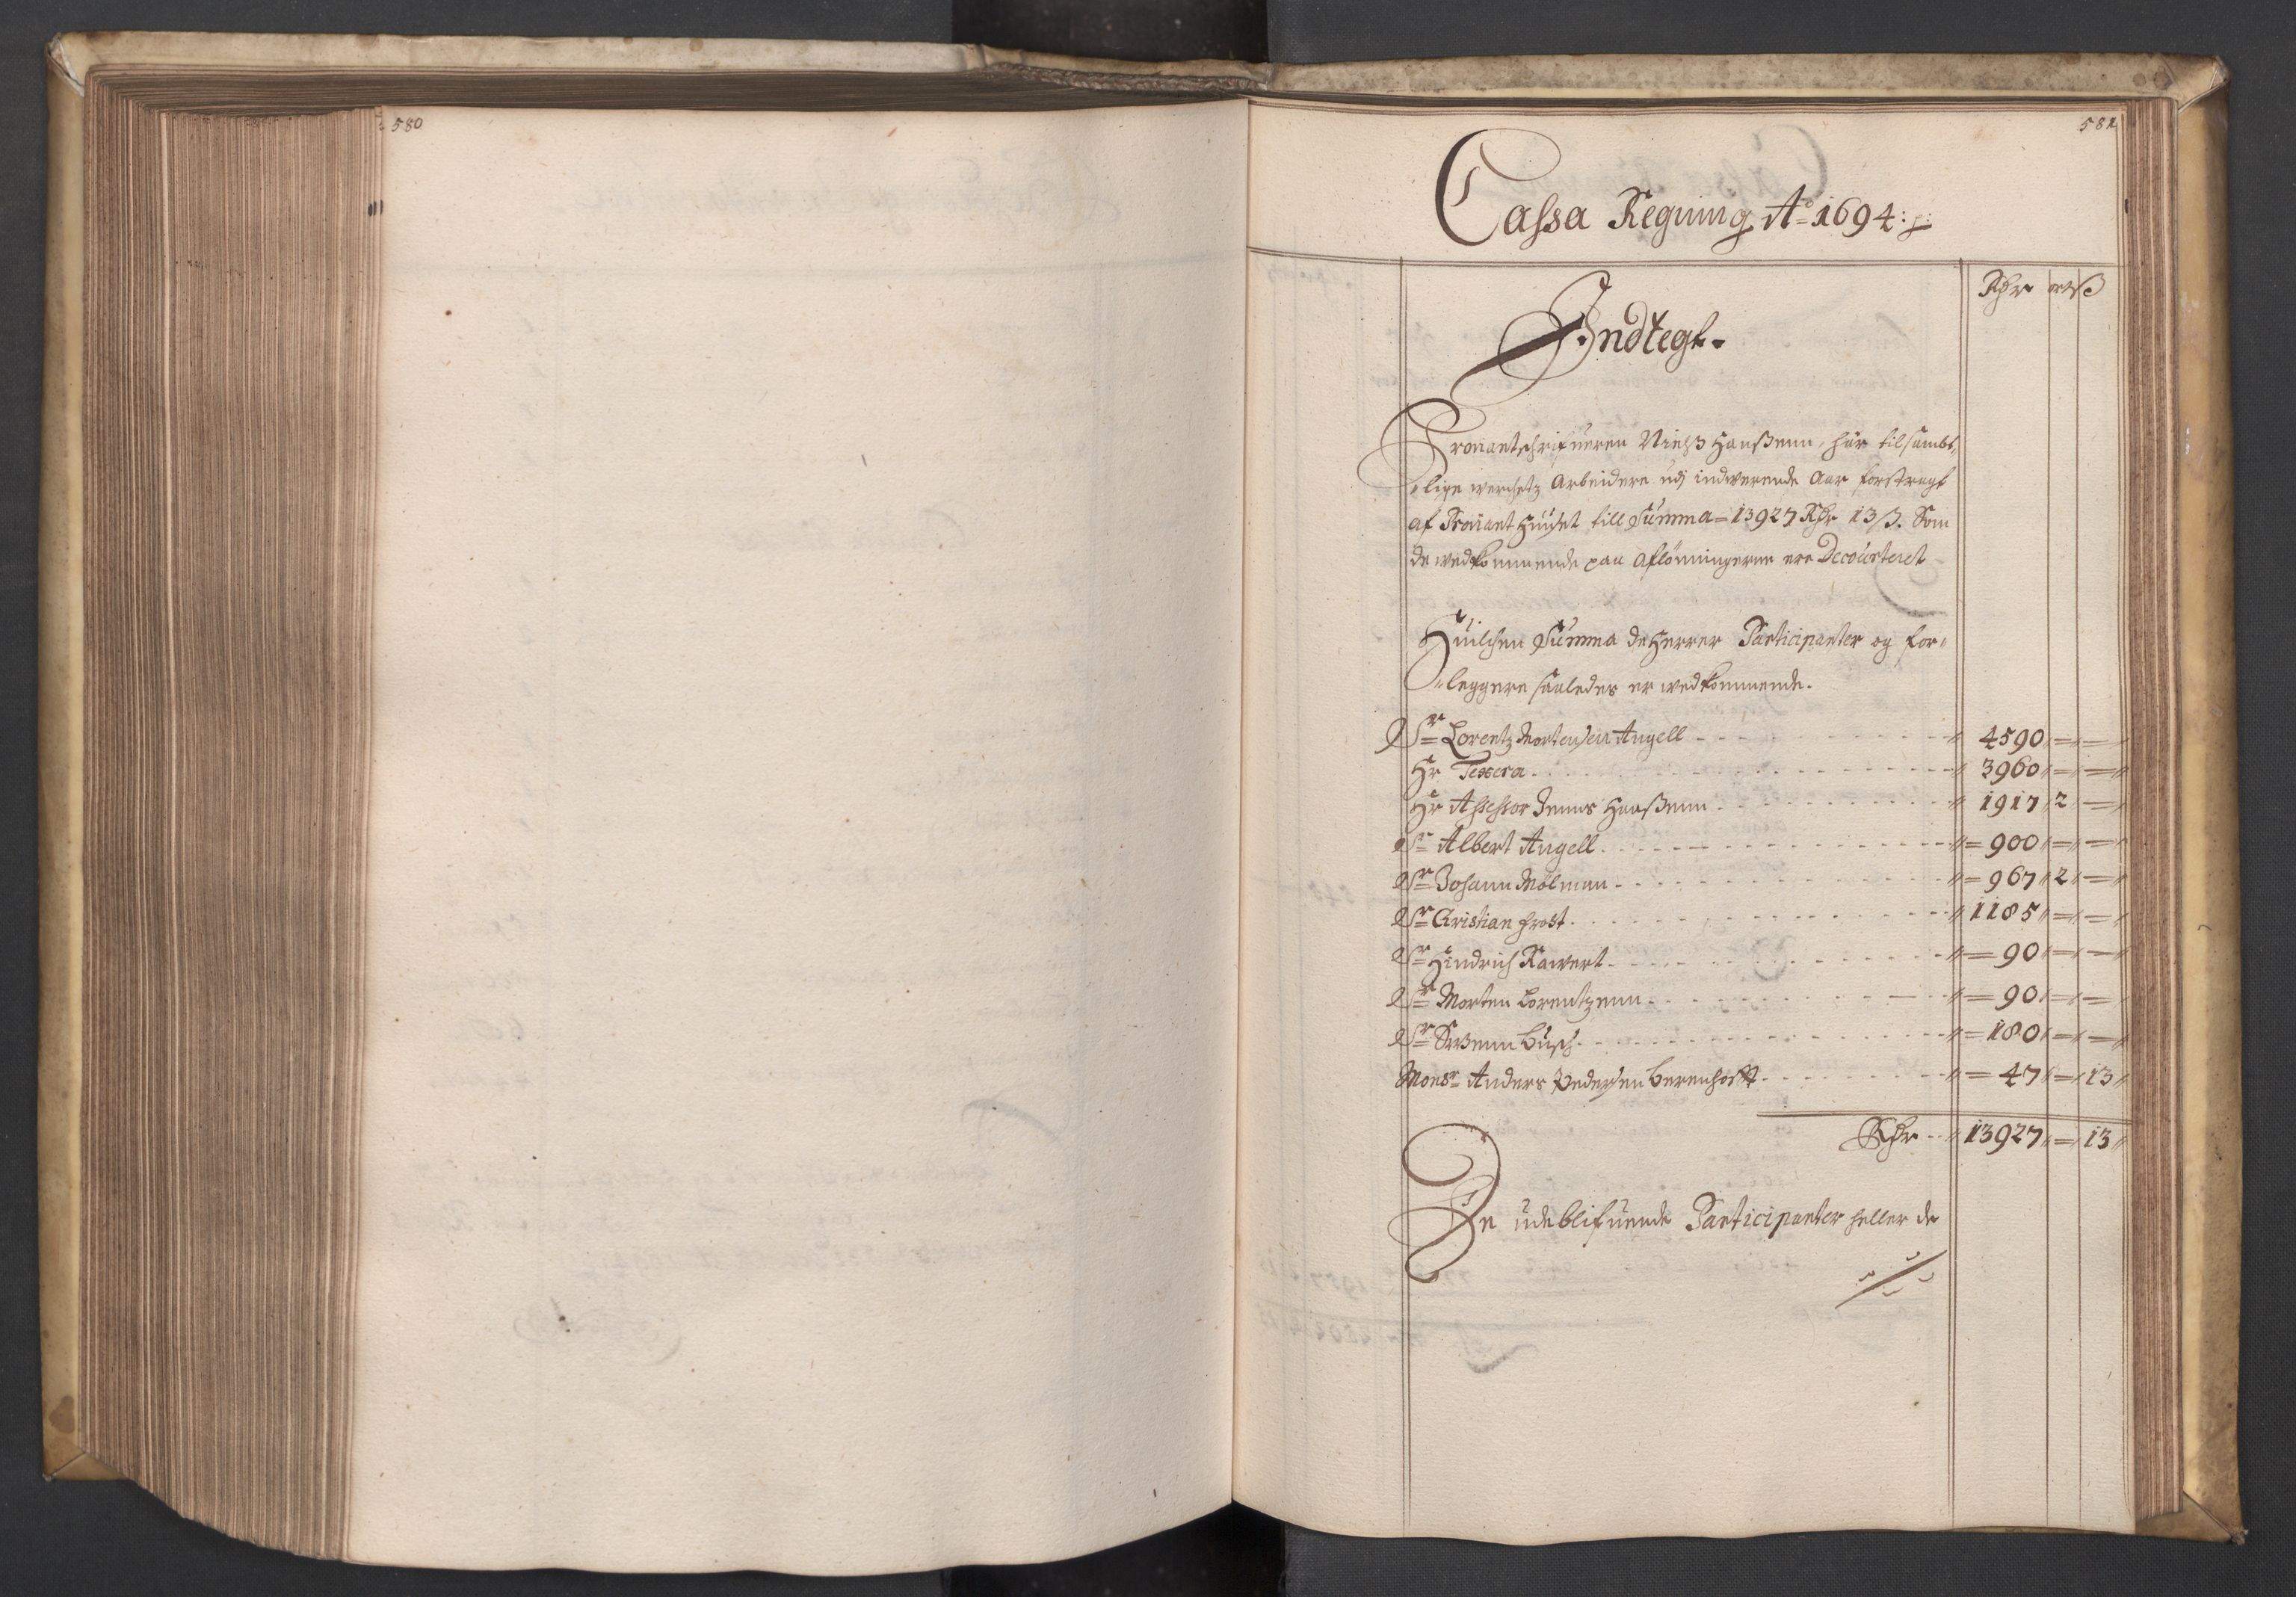 580
581
Cassa Regning Aº 1694
Rdr ort ß
Indtegt
Proviantschrifueren Nielß Hanßenn, har til sambt„
„lige werchetz Arbeidere udj indwerende Aar forstragt
af Proviant Huuset till Summa = 13927 Rdr 13 ß. Som
de wedkommende paa Aflönningerne ere Decourteret
Huilchen Summa de Herrer Participanter og for„
„leggere saaledes er wedkommende.
Sr Lorentz Mortensen Angell 4590
Hr Texera 3960
Hr Assessor Jenns Hanßenn 1917 2
Sr Albert Angell 900
Sr Johann Mölman 967 2
Sr Christian Frost 1185
Sr Hindrich Rawert 90
Sr Morten Lorentzenn 90
Sr Busch 180
Monsr Anders Pedersen Berenhoff 47 13
Rdr 13927 13
De udeblifuende Participanter heller de